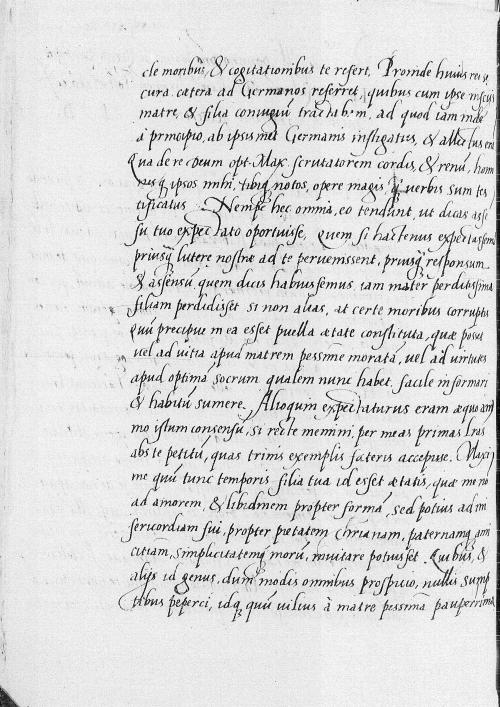 cle moribus, & cogitationibus te refert. Proinde huius rei
cura cetera ad Germanos referret, quibus cum ipse
matre, & filia coniugiũ tractabam, ad quod iam inde
à principio, ab ipsis met Germanis instigatus, &
Qua de re Deum opt. Max. scrutatorem cordis, & renũ,
q̃ ipsos mihi, tibiq̃ notos, opere magis q̃ verbis sum tes
tificatus. Nempe hec omnia, eo tendunt, ut dicas
su tuo expectato oportuisse, Quem si hactenus expectassem
priusq̃ lutere nostre ad te peruenissent, priusq̃ responsum
& assensũ, quem dicis habuissemus, iam mater perditissima
filiam perdidisset si non alias, at certe moribus corrupta
Quũ precipue in ea esset puella ætate constituta, quæ
vel ad vitia apud matrem pessime morata, vel ad virtutes
apud optimã socrum qualem nunc habet, facile informari
& habitũ sumere. Alioquin expectaturus eram æquo
mo istum consensũ, si recte memini, per meas primas lr̃as
abs te petitũ, quas trinis exemplis fateris accepisse.
me quũ tunc temporis filia tua id esset ætatis, quæ me nõ
ad amorem, & libidinem propter formã, sed potius ad mi
sericordiam sui, propter pietatem Chrianam, paternamq̃ ami
citiam, simplicitatemq̃ morũ, inuitare potuisset. Quibus, &
alijs id genus, dum modis omnibus prospicio, nullis sump
tibus peperci, idq̃ quũ vilius à matre pessima pauperrima